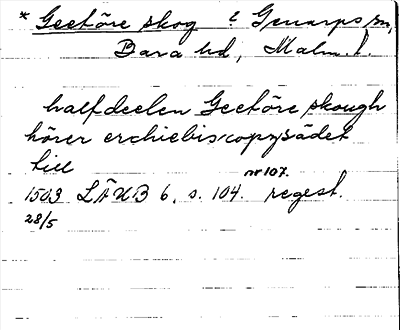 * Geetöre skog i Genarps sn,
Bara hd, Malm. l.
halfdeelen Geetöre skough
hörer erchiebiscopzsädet
till
nr 107.
1503 LÄUB 6, s. 104. regest.
28/5